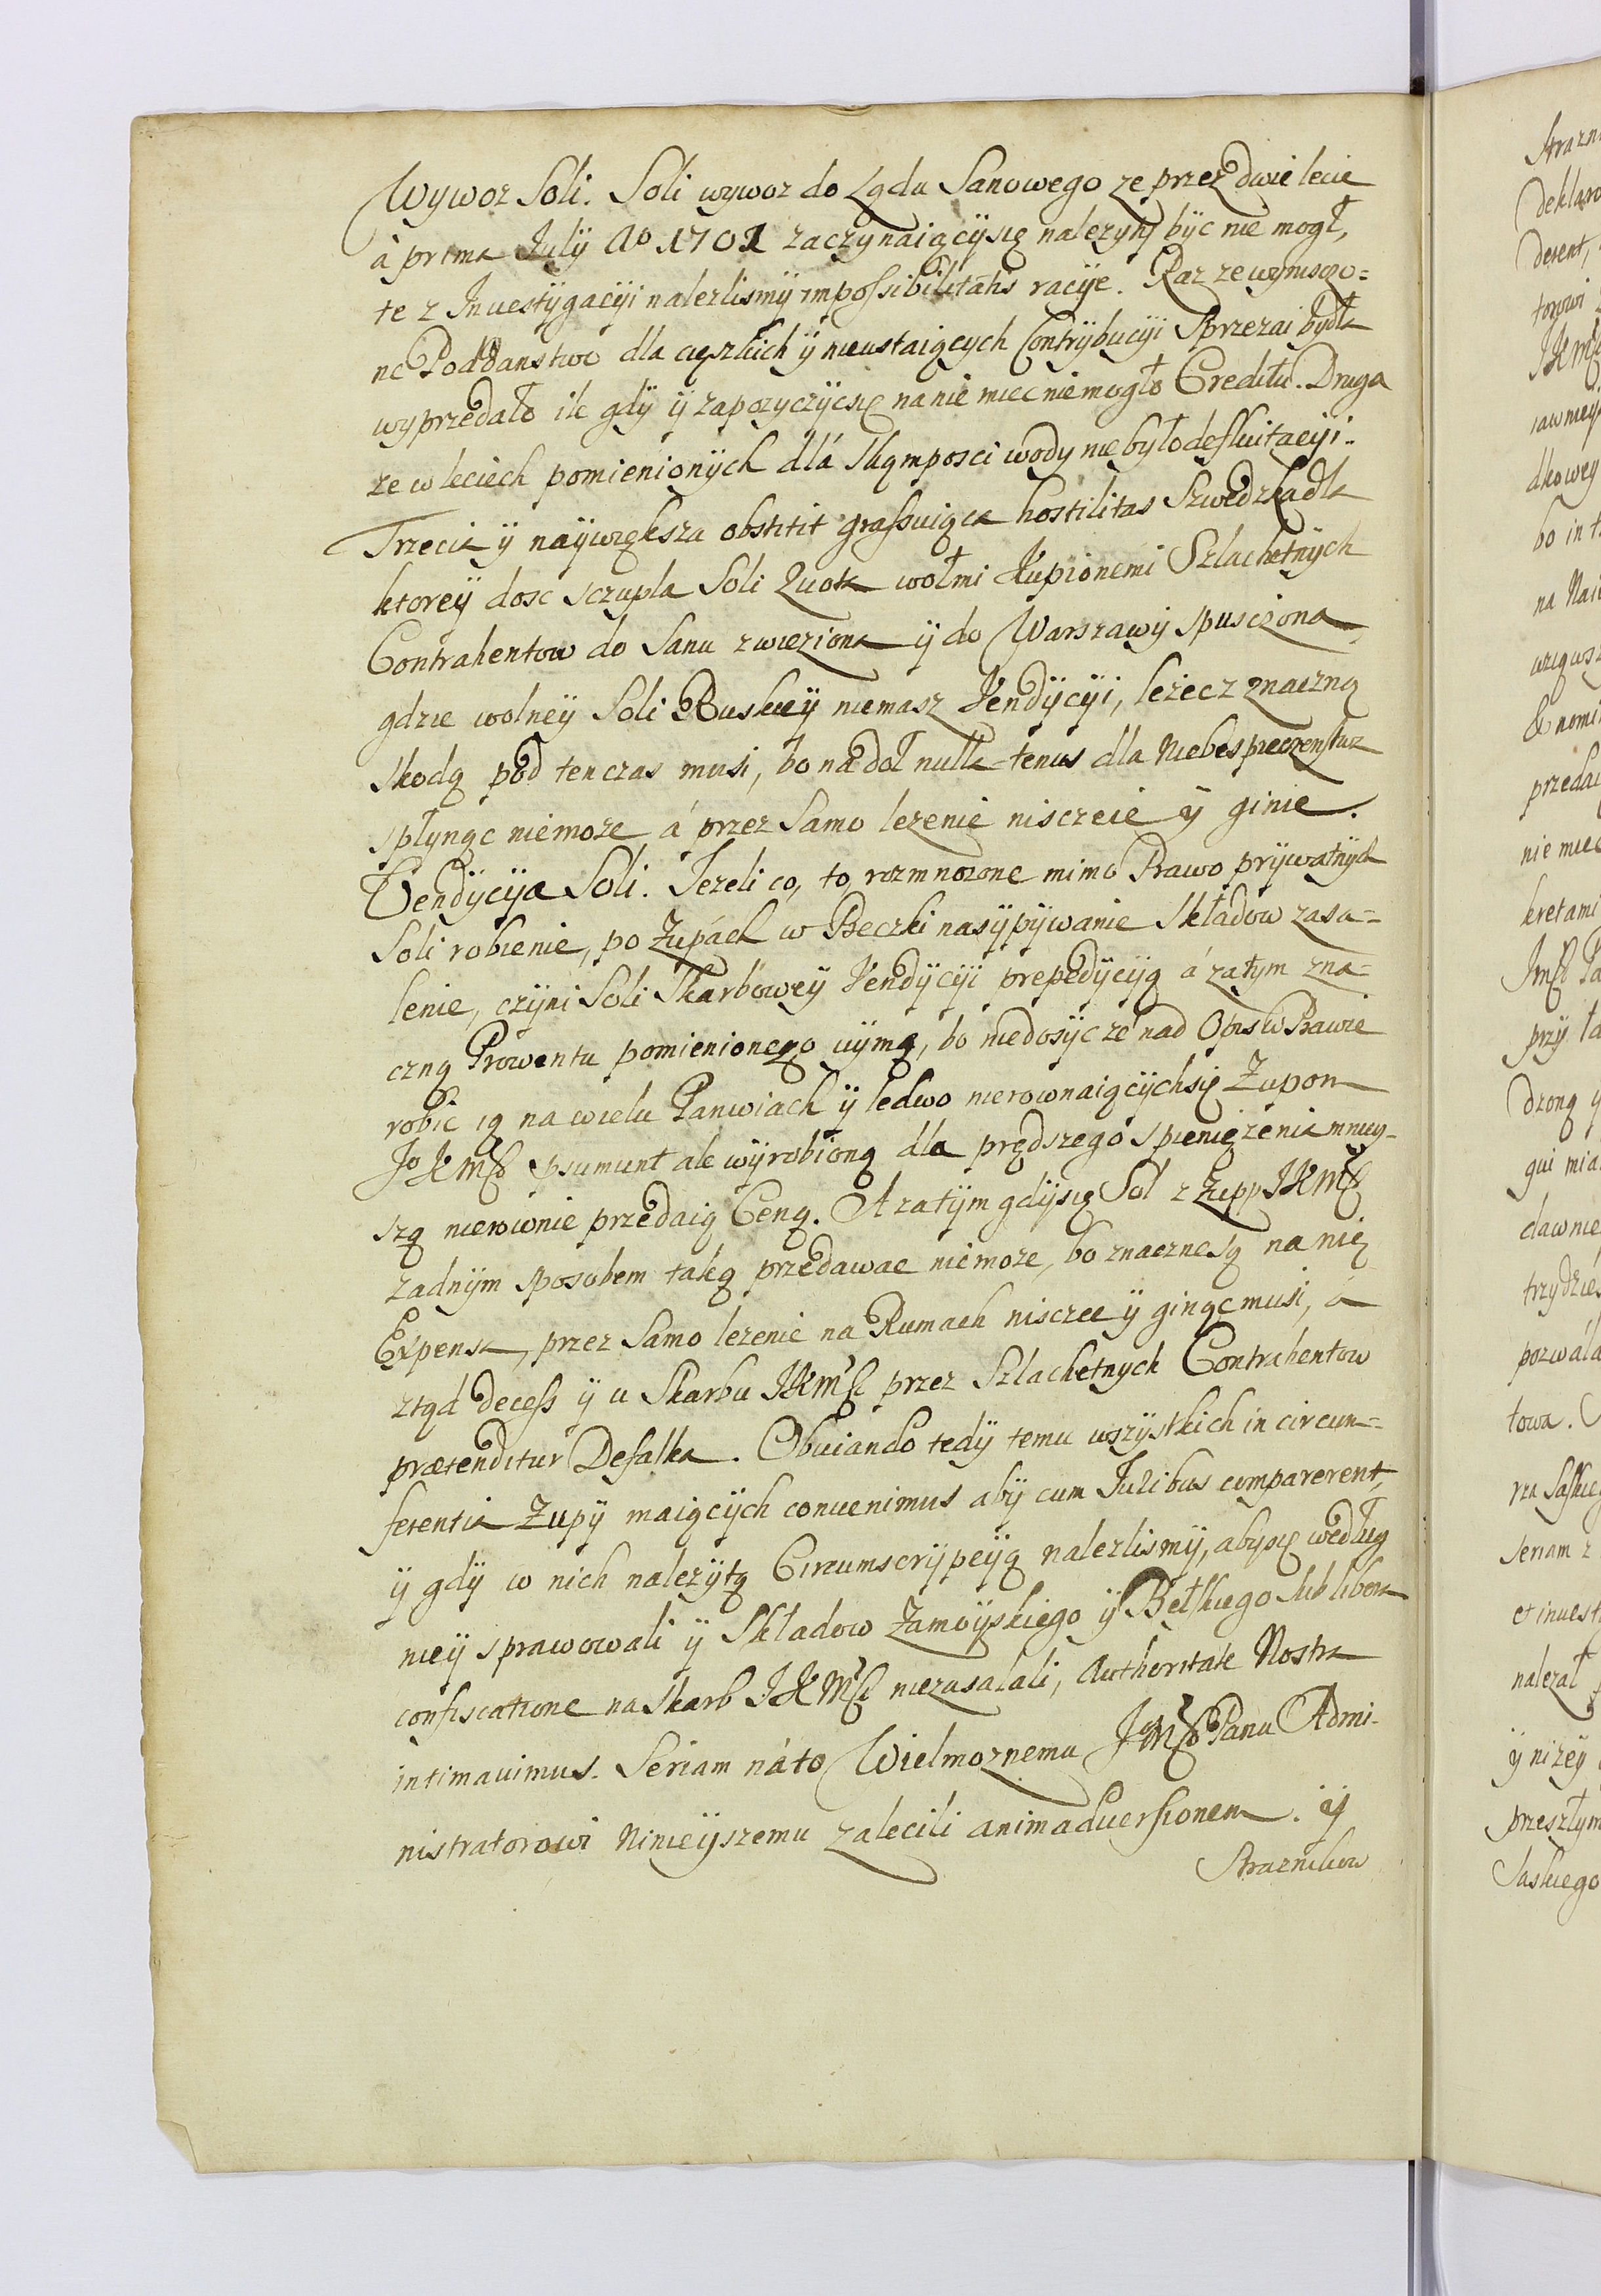 Wywoz Soli. Soli wywoz do Lądu Sanowego ze przez dwie lecie
à prima Julÿ Ao 1701 zaczynaiącÿsię nalezytÿ bÿc nie mogł,
te z Inuestÿgacÿi nalezlismÿ impossibilitatis racÿe. Raz ze wyniszczo=
ne Poddanstwo dla cięzkich ÿ nieustaiącÿch Contrÿbucÿi Sprzezai bÿdła
wyprzedało ile gdÿ ÿ zapozyczÿcsię na nie miec niemogło Creditu. Druga
ze w leciech pomienionÿch dla skąmposci wody nie było defluitacÿi.
Trzecia ÿ naÿwiększa obstitit grassuiąca hostilitas Szwedzka dla
ktoreÿ dosc sczupla Soli Quota wołmi Kupionemi Szlachetnÿch
Contrahentow do Sanu zwieziona ÿ do Warszawÿ spusciona
gdzie wolneÿ Soli Ruskieÿ niemasz Vendÿcÿi, lezec z znaczną
skodą pod ten czas musi, bo na doł nulla-tenus dla Niebespieczenstwa
spłynąc niemoze á przez samo lezenie nisczeie ÿ ginie.
Vendÿcÿa Soli. Jezeli co, to rozmnozone mimo Prawo prÿwatnÿch
Soli robienie, po Zupách w Beczki nasÿpÿwanie Składow zasa=
lenie, czÿni Soli Skarboweÿ Vendÿcÿi prepedÿcÿą á zatym zna=
czną Prowentu pomienionego uÿmą, bo niedosÿc ze nad Opis w Prawie
robic ią na wielu Panwiach ÿ ledwo nierownaiącÿchsię Zupom
Jo K Mści psumunt ale wÿrobioną dla prędszego spieniązenia mniey-
szą nierownie przedaią Ceną. A zatÿm gdÿsię Sol z Zupp JKMści
zadnÿm sposobem taką przedawac niemoze, bo znaczne są na nię
Expensa, przez samo lezenie na Rumach nisczec ÿ ginąc musi, á
ztąd decess ÿ u Skarbu JKMści przez Szlachetnych Contrahentow
prætenditur Defalka. Obuiando tedÿ temu wszÿstkich in circum=
ferentia Zupÿ maiącÿch conuenimus abÿ cum Juribus comparerent,
ÿ gdÿ w nich nalezÿtą Circumscrÿpcÿą nalezlismÿ, abysię według
nieÿ sprawowali ÿ Składow Zamoÿskiego ÿ Bełskiego sub libera
confiscatione na Skarb JKMści niezasalali, Authoritate Nostra
intimauimus. Seriam náto Wielmoznemu JoMści Panu Admi-
nistratorowi Ninieÿszemu zalecili animaduersionem. ÿ
Straznikow
Strazni
deklaro
derent,
torowi
JKMści
dkowey
bo in t
na Nai
& nomi
przedai
nie miec
kretami
Jmści Pa
przÿ ta
drong y
gui mia
dawnie
trzydzies
pozwála
towa.
rza Saskieg
seriam z
et inuest
nalezał
ÿ nizeÿ
przeszłym
Saskiego